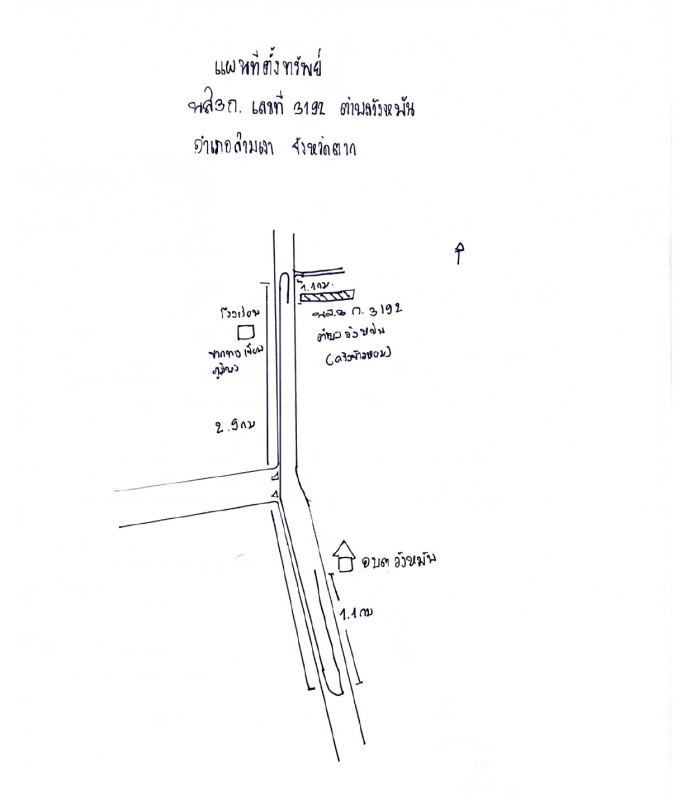 แผนที่ตั้งทรัพย์
นส3ก. เลขที่ 3192 ตำบลวังหมัน
อำเภอสามเงา จังหวัดตาก
1.1กม.
นส.3 ก. 3192
ตำบลวังหมัน
โรงเรียน
2.9กม
อบต วังหมัน
1.1กม